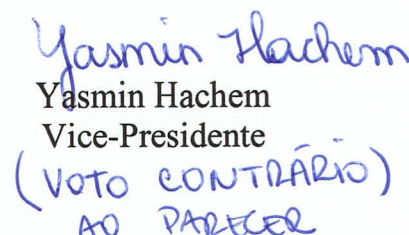 Yasmin Hachem
Yasmin Hachem
Vice-Presidente
(VOTO CONTRÁRIO)
AO PARECER